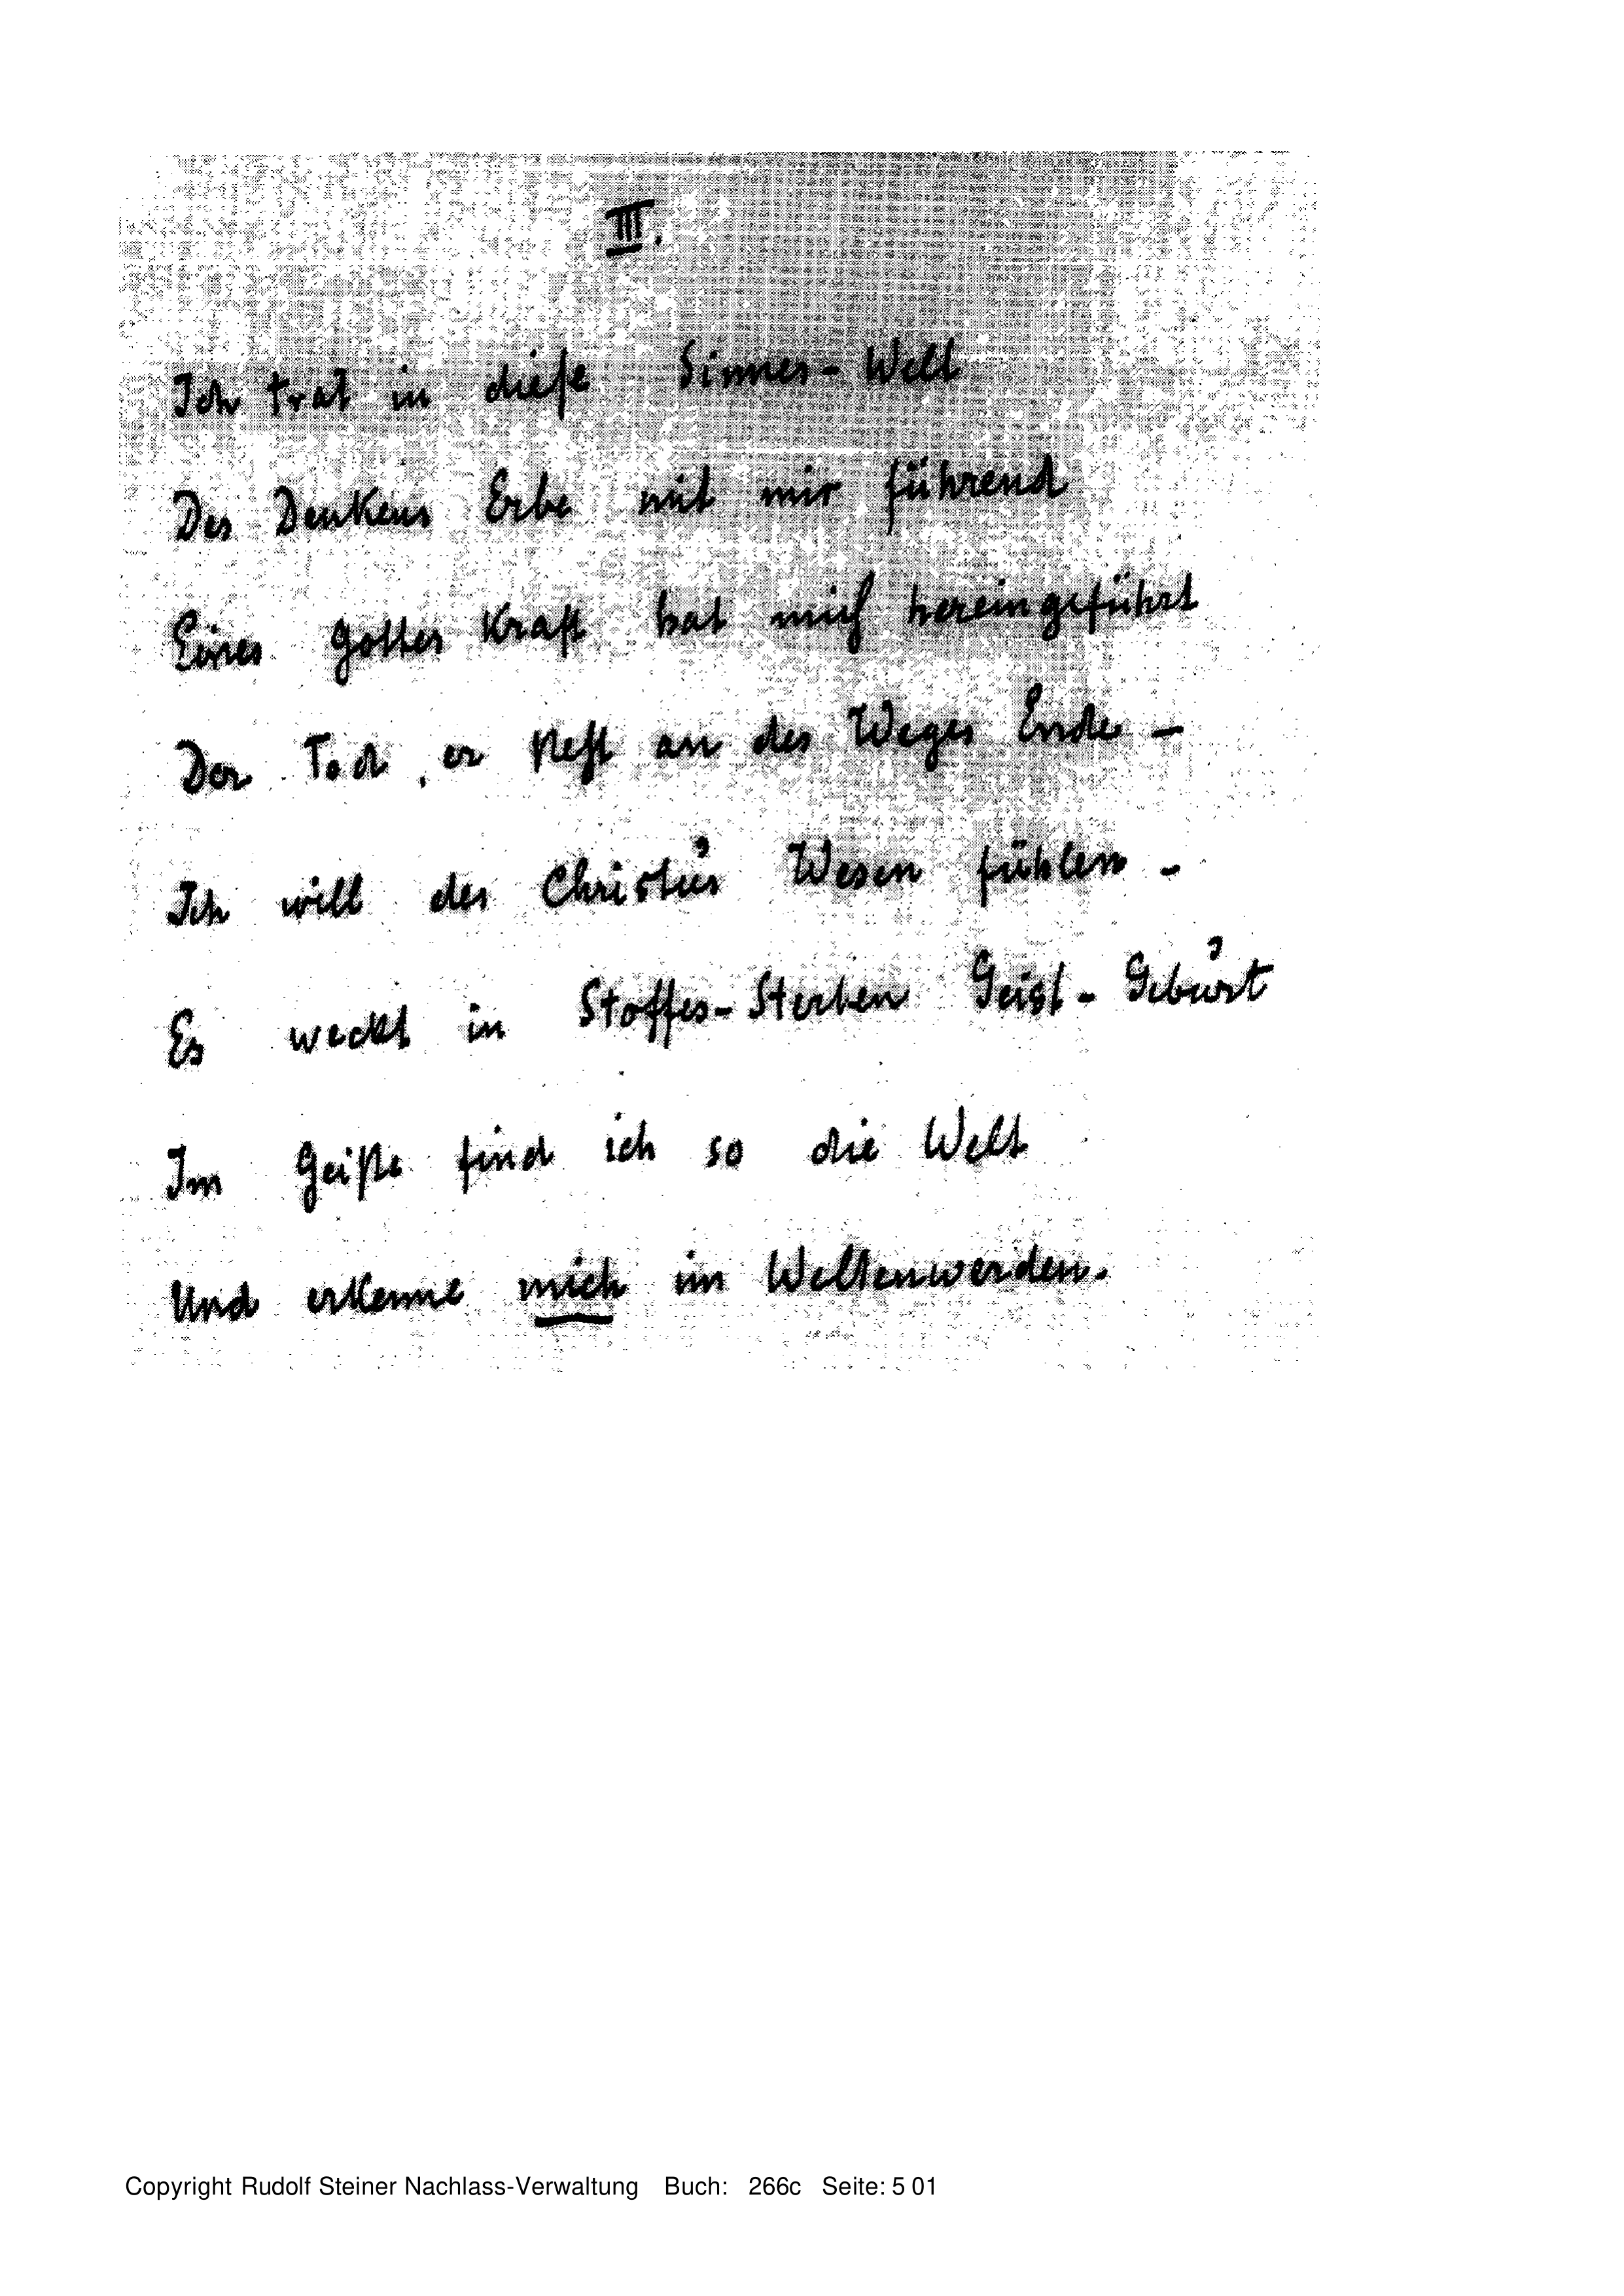 III.
Ich trat in diese Sinnes-Welt
Des Denkens Erbe mit mir führend
Eines Gottes Kraft hat mich hereingeführt
Der Tod, er steht an des Weges Ende –
Ich will des Christus Wesen fühlen –
Es weckt in Stoffes-Sterben Geist-Geburt
Im Geiste find ich so die Welt
Und erkenne mich im Weltenwerden.
Copyright Rudolf Steiner Nachlass-Verwaltung Buch: 266c Seite: 5 01